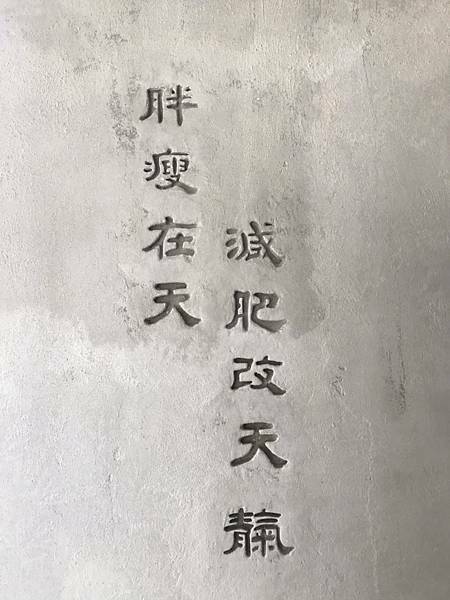 胖瘦在天
減肥改天靝